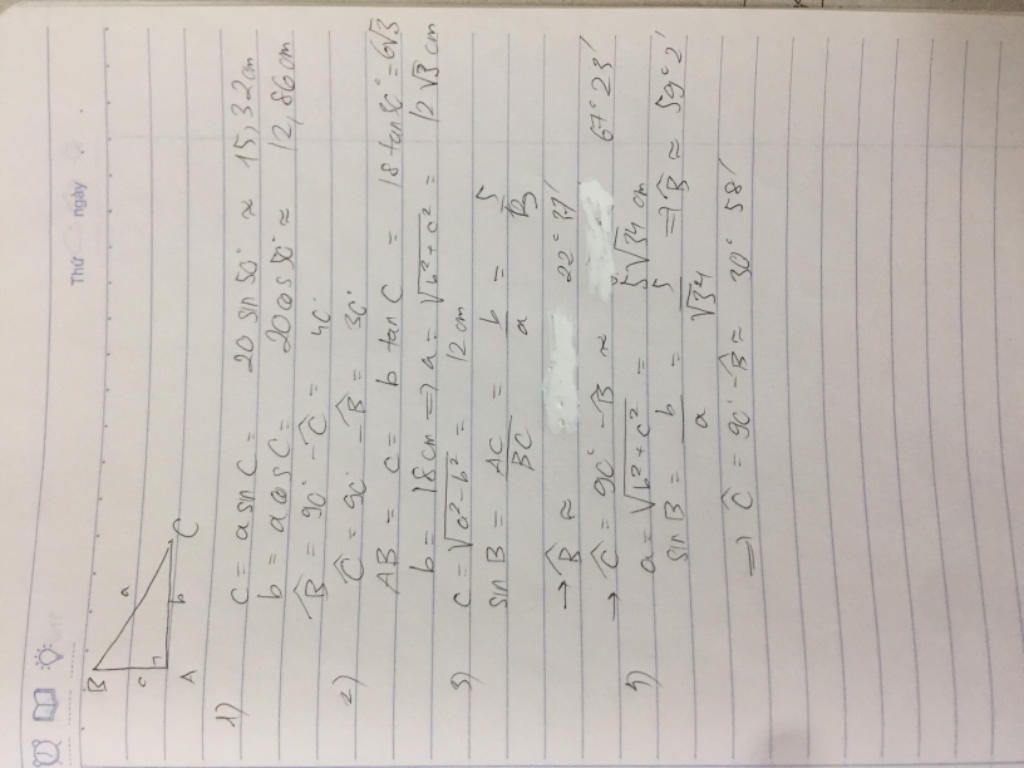 Thứ ngày
B
a
c
b
A C
1) C = a sin C = 20 sin 50° ≈ 15,32 cm
b = a cos C = 20 cos 50° ≈ 12,86 cm
B̂ = 90° - Ĉ = 40°
2) Ĉ = 90° - B̂ = 30°
AB = c = b tan C = 18 tan 30° = 6√3
b = 18 cm ⇒ a = √(b² + c²) = 12√3 cm
3) C = √(a² - b²) = 12 cm
sin B = AC/BC = b/a = 5/13
→ B̂ ≈ 22° 37'
→ Ĉ = 90° - B̂ ≈ 67° 23'
a = √(b² + c²) = 5√34 cm
sin B = b/a = 5/√34 ⇒ B̂ ≈ 59° 2'
⇒ Ĉ = 90° - B̂ ≈ 30° 58'